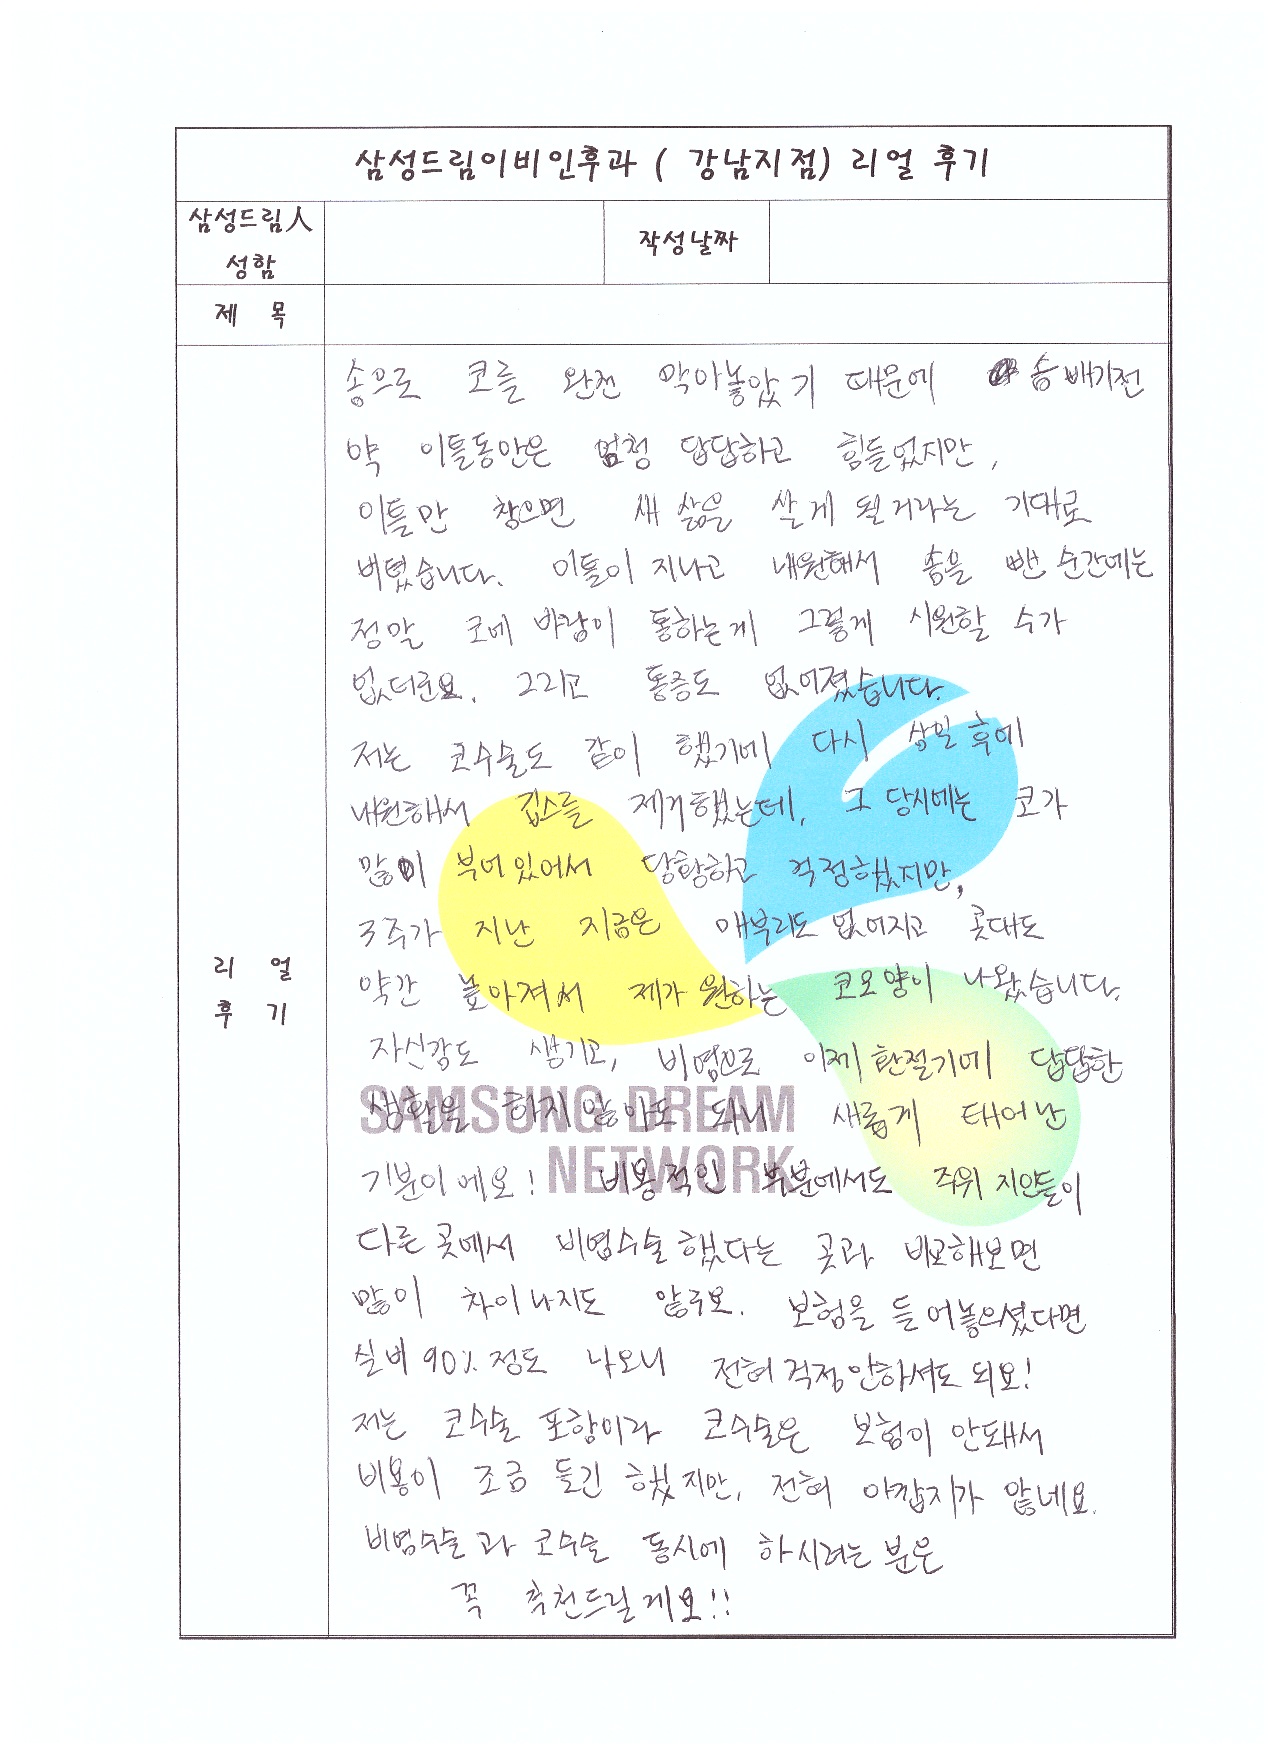 삼성드림이비인후과 ( 강남지점) 리얼 후기
삼성드림人
성함
작성날짜
제 목
리 얼
후 기
솜으로 코를 완전 막아놓았기 때문에 솜 빼기전
약 이틀동안은 엄청 답답하고 힘들었지만,
이틀만 참으면 새 삶을 살게 될거라는 기대로
버텼습니다. 이틀이 지나고 내원해서 솜을 뺀 순간에는
정말 코에 바람이 통하는게 그렇게 시원할 수가
없더군요. 그리고 통증도 없어졌습니다.
저는 코수술도 같이 했기에 다시 삼일 후에
내원해서 깁스를 제거했는데, 그 당시에는 코가
많이 부어있어서 당황하고 걱정했지만,
3주가 지난 지금은 매부리도 없어지고 콧대도
약간 높아져서 제가 원하는 코모양이 나왔습니다.
자신감도 생기고, 비염으로 이제 환절기에 답답한
생활을 하지 않아도 되니 새롭게 태어난
기분이에요! 비용적인 부분에서도 주위 지인들이
다른 곳에서 비염수술 했다는 곳과 비교해보면
많이 차이나지도 않구요. 보험을 들어놓으셨다면
실비 90% 정도 나오니 전혀 걱정안하셔도 되요!
저는 코수술 포함이라 코수술은 보험이 안돼서
비용이 조금 들긴 했지만, 전혀 아깝지가 않네요.
비염수술과 코수술 동시에 하시려는 분은
꼭 추천드릴게요!!
SAMSUNG DREAM
NETWORK